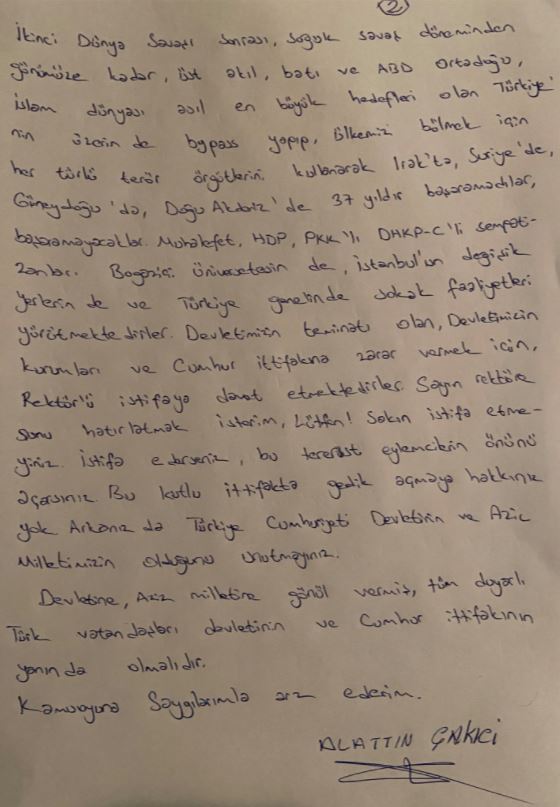 2
İkinci Dünya Savaşı sonrası, soğuk savaş döneminden
günümüze kadar, üst akıl, batı ve ABD Ortadoğu,
İslam dünyası asıl en büyük hedefleri olan Türkiye'
nin üzerin de bypass yapıp, ülkemizi bölmek için
her türlü terör örgütlerini kullanarak Irak'ta, Suriye'de,
Güneydoğu'da, Doğu Akdeniz'de 37 yıldır başaramadılar,
başaramayacaklar. Muhalefet, HDP, PKK'lı DHKP-C'li sempati-
zanlar. Boğaziçi Üniversitesin de, İstanbul'un değişik
yerlerin de ve Türkiye genelinde sokak faaliyetleri
yürütmektedirler. Devletimizin teminatı olan, Devletimizin
kurumları ve Cumhur ittifakına zarar vermek için,
Rektör'ü istifaya davet etmektedirler. Sayın rektöre
şunu hatırlatmak isterim, Lütfen! Sakın istifa etme-
yiniz. İstifa ederseniz, bu terörist eylemcilerin önünü
açarsınız. Bu kutlu ittifakta gedik açmaya hakkınız
yok Arkanız da Türkiye Cumhuriyeti Devletinin ve Aziz
Milletimizin olduğunu unutmayınız.
Devletine, Aziz milletine gönül vermiş, tüm duyarlı
Türk vatandaşları devletinin ve Cumhur ittifakının
yanında olmalıdır.
Kamuoyuna Saygılarımla arz ederim.
ALATTİN ÇAKICI